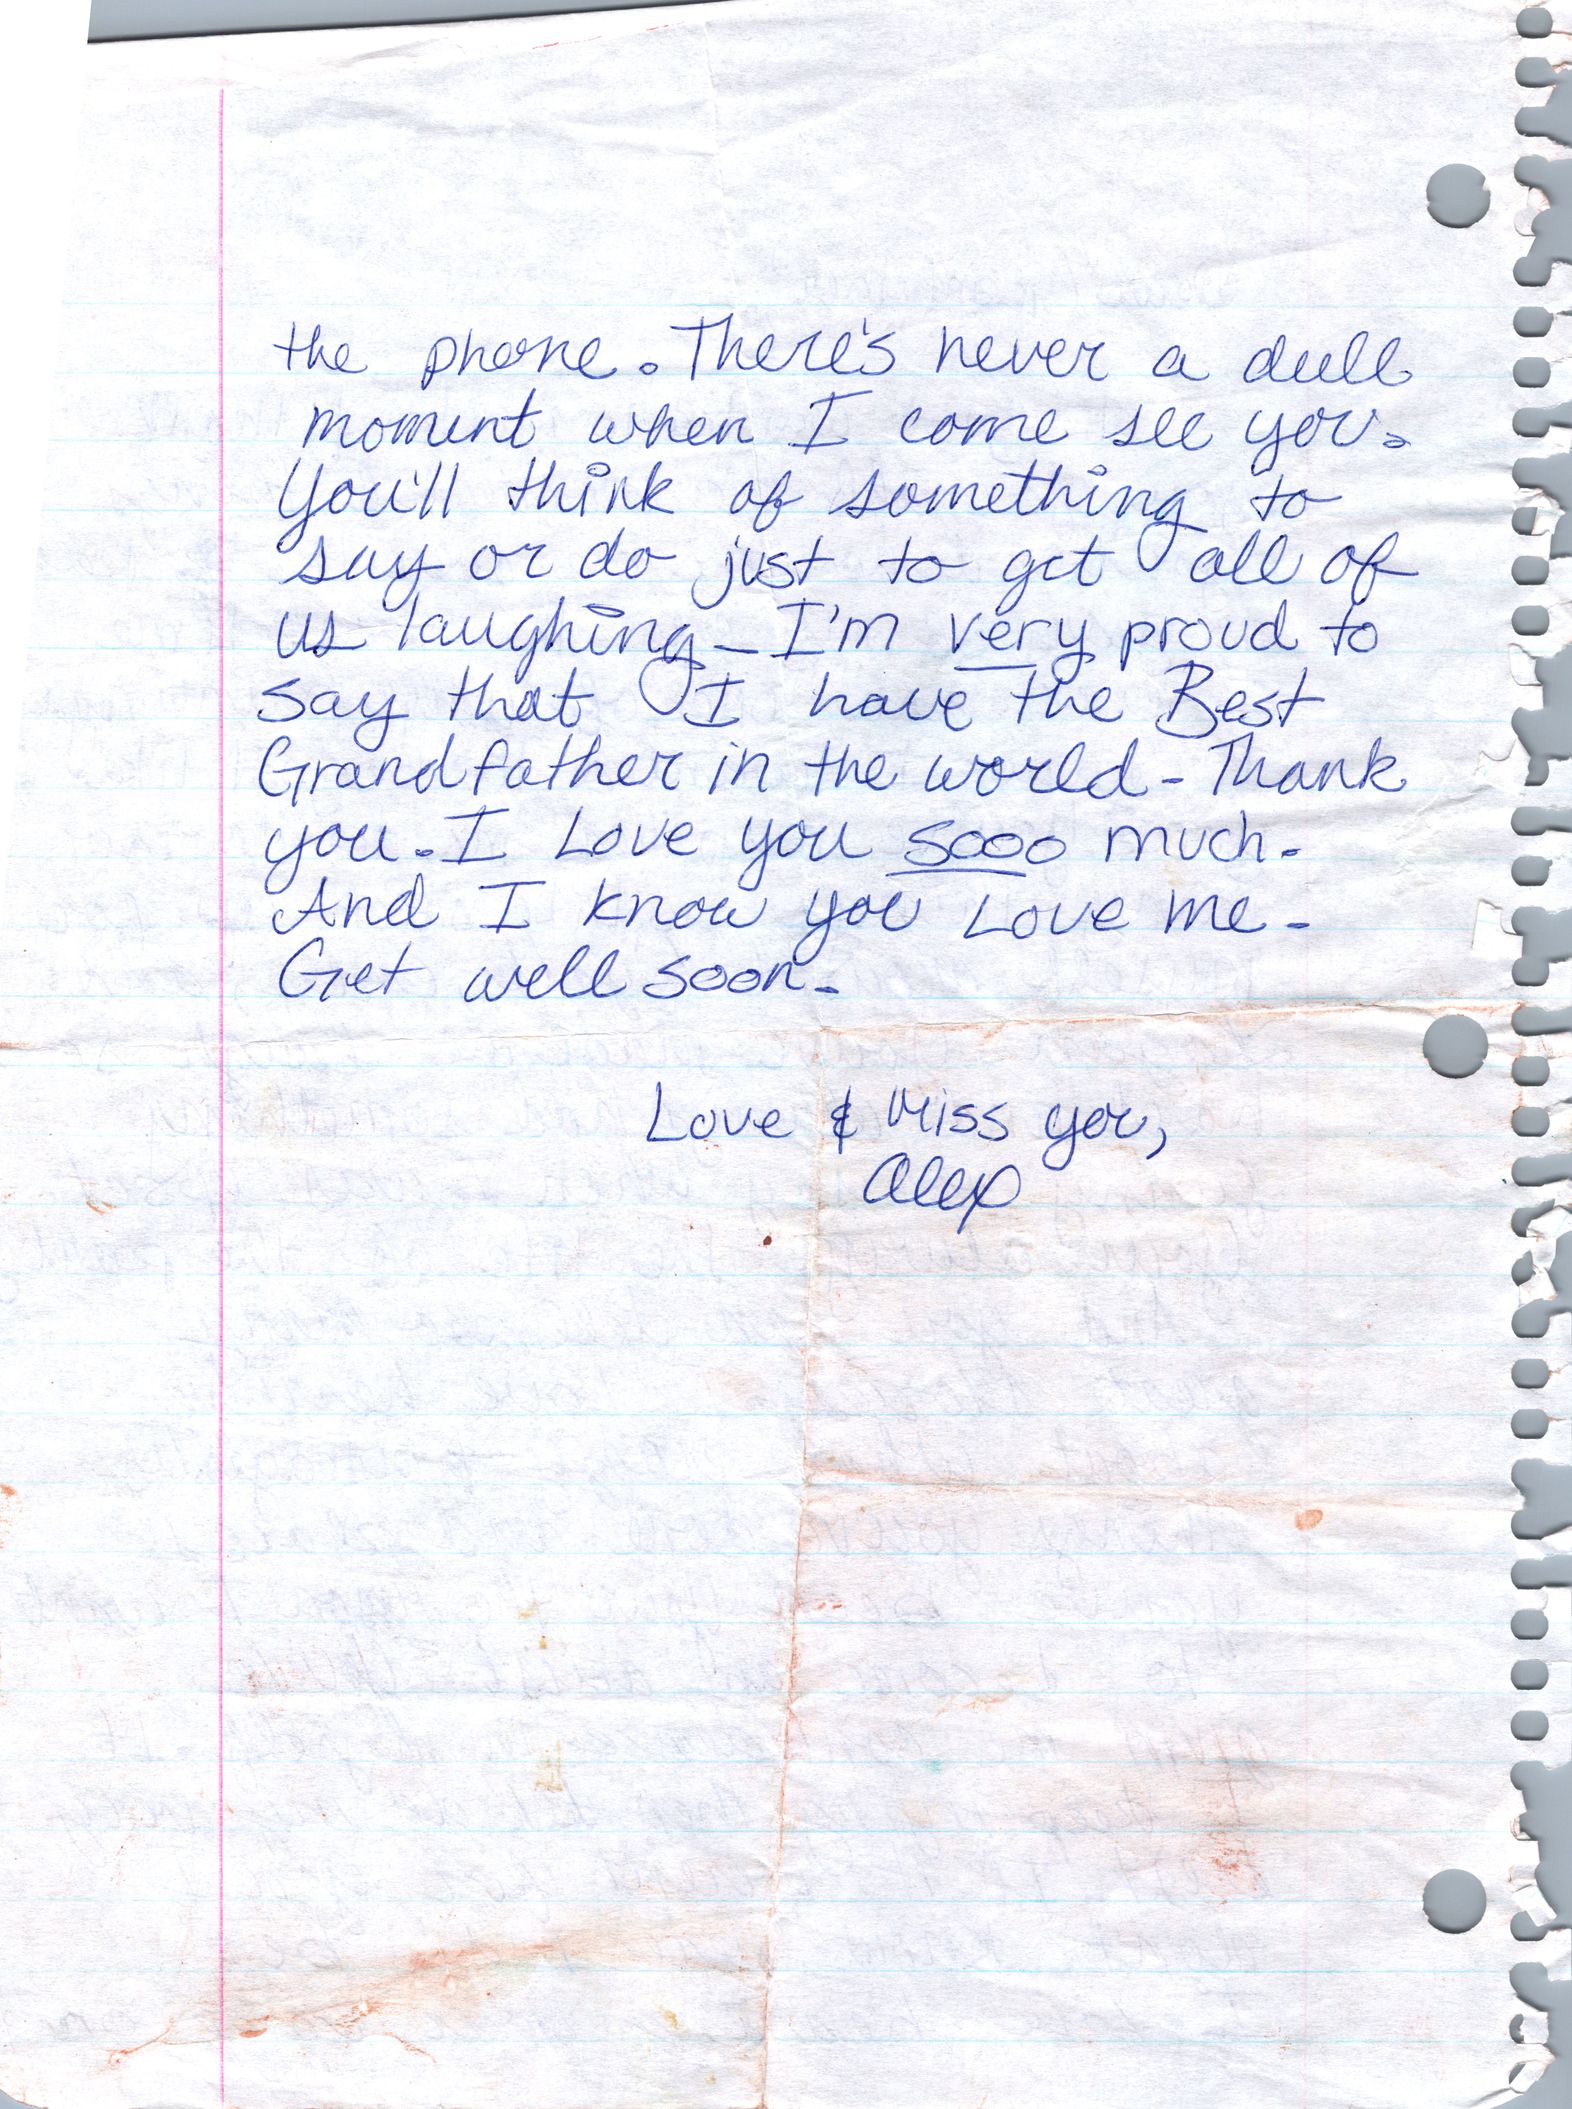 the phone. There's never a dull
moment when I come see you.
You'll think of something to
say or do just to get all of
us laughing - I'm very proud to
say that I have the Best
Grandfather in the world - Thank
you. I Love you sooo much.
And I know you Love me.
Get well soon.
Love & Miss you,
Alex